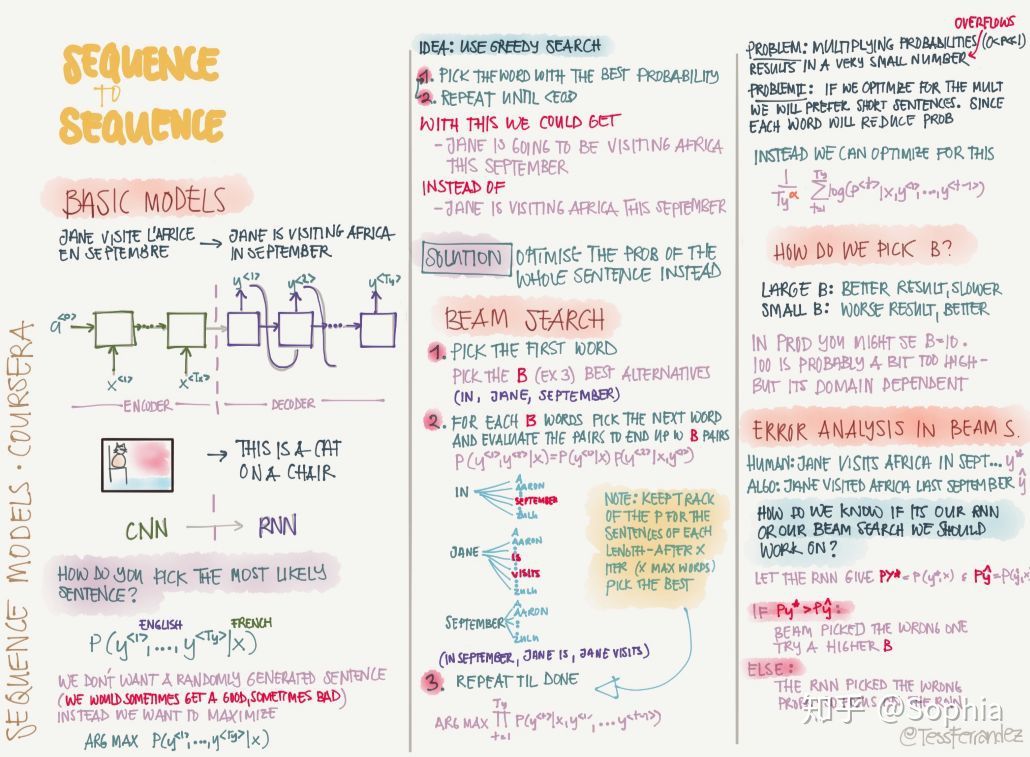 SEQUENCE
TO
SEQUENCE
SEQUENCE MODELS · COURSERA
BASIC MODELS
JANE VISITE L'AFRICE
EN SEPTEMBRE
→ JANE IS VISITING AFRICA
IN SEPTEMBER
y<1> y<2> y<Ty>
a<0>
x<1> x<Tx>
ENCODER DECODER
→ THIS IS A CAT
ON A CHAIR
CNN → RNN
HOW DO YOU PICK THE MOST LIKELY
SENTENCE?
ENGLISH FRENCH
P(y<1>,...,y<Ty>|x)
WE DON'T WANT A RANDOMLY GENERATED SENTENCE
(WE WOULD SOMETIMES GET A GOOD, SOMETIMES BAD)
INSTEAD WE WANT TO MAXIMIZE
ARG MAX P(y<1>,...,y<Ty>|x)
IDEA: USE GREEDY SEARCH
1. PICK THE WORD WITH THE BEST PROBABILITY
2. REPEAT UNTIL <EOD
WITH THIS WE COULD GET
- JANE IS GOING TO BE VISITING AFRICA
THIS SEPTEMBER
INSTEAD OF
- JANE IS VISITING AFRICA THIS SEPTEMBER
SOLUTION OPTIMISE THE PROB OF THE
WHOLE SENTENCE INSTEAD
BEAM SEARCH
1. PICK THE FIRST WORD
PICK THE B (EX 3) BEST ALTERNATIVES
(IN, JANE, SEPTEMBER)
2. FOR EACH B WORDS PICK THE NEXT WORD
AND EVALUATE THE PAIRS TO END UP W B PAIRS
P(y<1>,y<2>|x)=P(y<1>|x) P(y<2>|x,y<1>)
IN
A
AARON
SEPTEMBER
ZULU
JANE
A
AARON
IS
VISITS
ZULU
SEPTEMBER
A
AARON
ZULU
NOTE: KEEP TRACK
OF THE P FOR THE
SENTENCES OF EACH
LENGTH - AFTER X
ITER (X MAX WORDS)
PICK THE BEST
(IN SEPTEMBER, JANE IS, JANE VISITS)
3. REPEAT TIL DONE
ARG MAX ∏ Ty t=1 P(y<t>|x,y<1>,...y<t-1>)
OVERFLOWS
PROBLEM: MULTIPLYING PROBABILITIES (0<P≤1)
RESULTS IN A VERY SMALL NUMBER
PROBLEM II: IF WE OPTIMIZE FOR THE MULT
WE WILL PREFER SHORT SENTENCES. SINCE
EACH WORD WILL REDUCE PROB
INSTEAD WE CAN OPTIMIZE FOR THIS
1/Ty^α ∑ Ty t=1 log(P<t>|x,y<1>,...,y<t-1>)
HOW DO WE PICK B?
LARGE B: BETTER RESULT, SLOWER
SMALL B: WORSE RESULT, BETTER
IN PROD YOU MIGHT SE B=10.
100 IS PROBABLY A BIT TOO HIGH -
BUT ITS DOMAIN DEPENDENT
ERROR ANALYSIS IN BEAM S.
HUMAN: JANE VISITS AFRICA IN SEPT... y*
ALGO: JANE VISITED AFRICA LAST SEPTEMBER ŷ
HOW DO WE KNOW IF ITS OUR RNN
OR OUR BEAM SEARCH WE SHOULD
WORK ON?
LET THE RNN GIVE Py*=P(y*,x) & Pŷ=P(ŷ,x)
IF Py*>Pŷ:
BEAM PICKED THE WRONG ONE
TRY A HIGHER B
ELSE:
THE RNN PICKED THE WRONG
THE RNN
知乎 @Sophia
@TessFerrandez